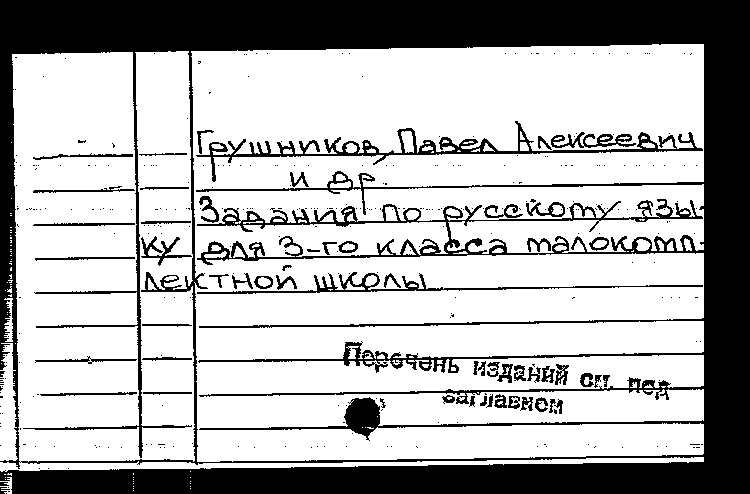 Грушников, Павел Алексеевич
и др
Задания по русскому язы-
ку для 3-го класса малокомп-
лектной школы
Перечень изданий см. под
заглавием